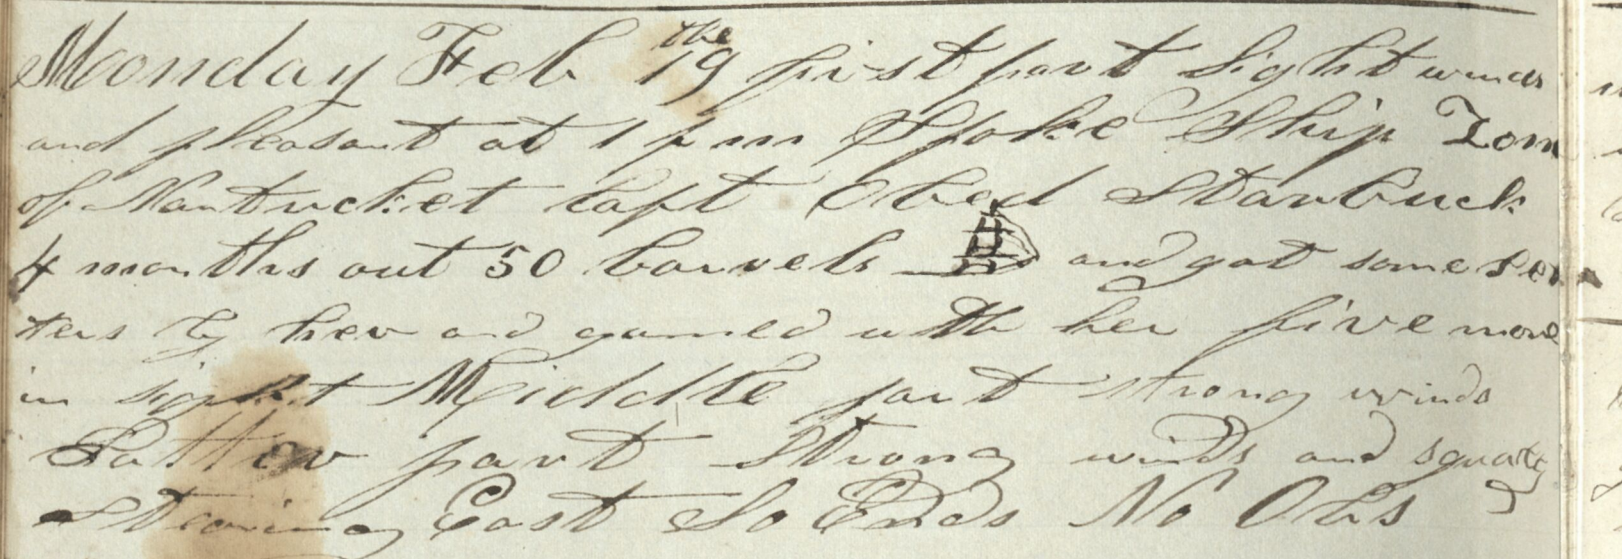 Monday Feb 19 the first part Light winds
and pleasant at 1 pm Spoke Ship Zone
of Nantucket Capt Obed Starbuck
4 months out 50 barrels and got some Let
ters by her and gamed with her five more
in sight Middle part strong winds
Latter part Strong winds and squaly
Stearing East So Ends No Obs